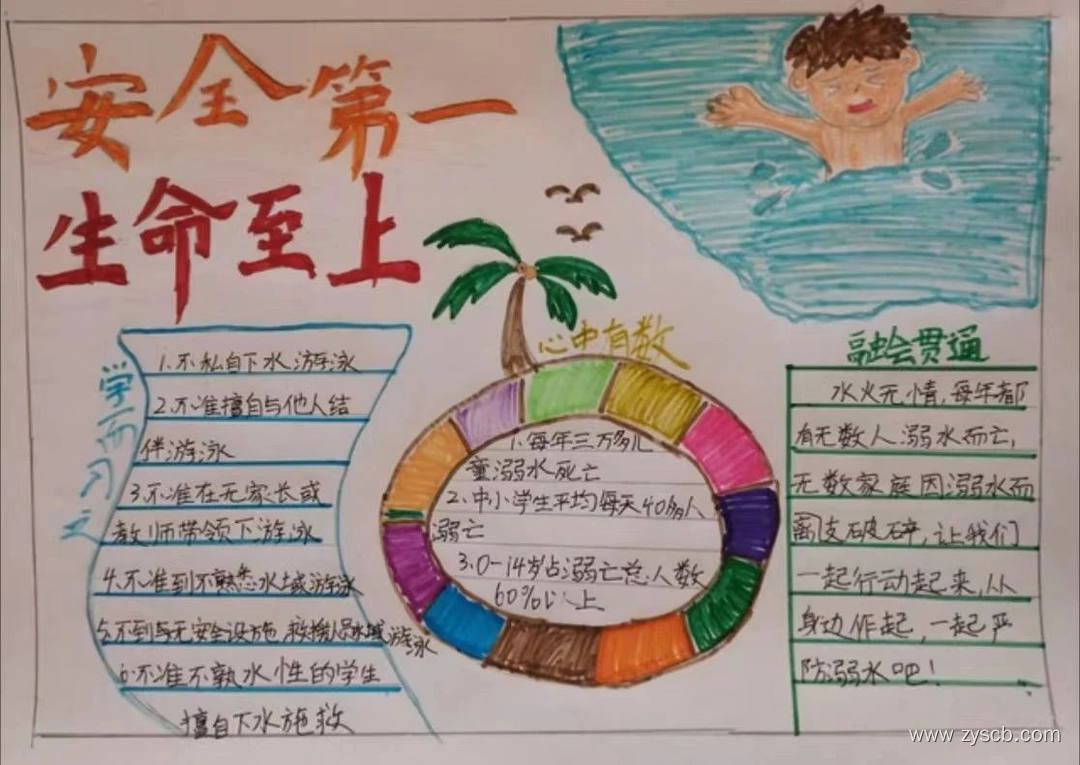 安全第一
生命至上
学而习之
1.不私自下水游泳
2.不准擅自与他人结
伴游泳
3.不准在无家长或
教师带领下游泳
4.不准到不熟悉水域游泳
5.不到与无安全设施、救援人员水域游泳
6.不准不熟水性的学生
擅自下水施救
心中有数
1.每年三万多儿
童溺水死亡
2.中小学生平均每天40多人
溺亡
3.0-14岁占溺亡总人数
60%以上
融会贯通
水火无情,每年都
有无数人溺水而亡,
无数家庭因溺水而
支破碎,让我们
一起行动起来,从
身边作起,一起严
防溺水吧!
www.zyscb.com